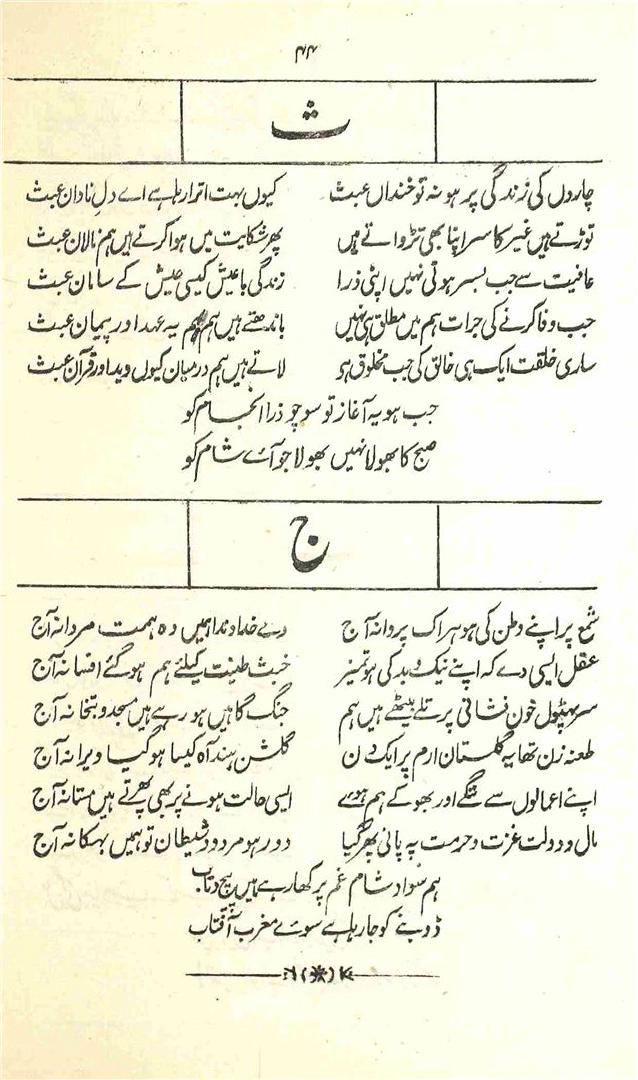 ۴۴
ث
چار دن کی زندگی پر ہو نہ تو خنداں عبث کیوں بہت اترا رہا ہے اے دلِ ناداں عبث
توڑتے ہیں غیر کا سر اپنا بھی تڑواتے ہیں پھر شکایت میں ہوا کرتے ہیں ہم نالاں عبث
عافیت سے جب بسر ہوتی نہیں اپنی ذرا زندگی با عیش کیسی عیش کے ساماں عبث
جب وفا کرنے کی جرات ہم میں مطلق ہی نہیں باندھتے ہیں ہم یہ عہد اور پیماں عبث
ساری خلقت ایک ہی خالق کی جب مخلوق ہو لاتے ہیں ہم درمیاں کیوں وید اور قرآں عبث
جب ہو یہ آغاز تو سوچو ذرا انجام کو
صبح کا بھولا نہیں بھولا جو آئے شام کو
ج
شمع پر اپنے وطن کی ہو ہر اک پروانہ آج دے خداوندا ہمیں وہ ہمت مردانہ آج
عقل ایسی دے کہ اپنے نیک و بد کی ہو تمیز خبث طینت کیلئے ہم ہو گئے افسانہ آج
سر پھٹول خون فشانی پر تلے بیٹھے ہیں ہم جنگ گاہیں ہو رہے ہیں مسجد و بتخانہ آج
طعنہ زن تھا یہ گلستان ارم پر ایک دن گلشن ہند آہ کیسا ہو گیا ویرانہ آج
اپنے اعمالوں سے ننگے اور بھوکے ہم ہوئے ایسی حالت ہونے پر بھی پھرتے ہیں مستانہ آج
مال و دولت عزت و حرمت پہ پانی پھر گیا دور ہو مردود شیطان تو ہمیں بہکا نہ آج
ہم سواد شام غم پر کھا رہے ہیں پیچ و تاب
ڈوبنے کو جا رہا ہے سوئے مغرب آفتاب